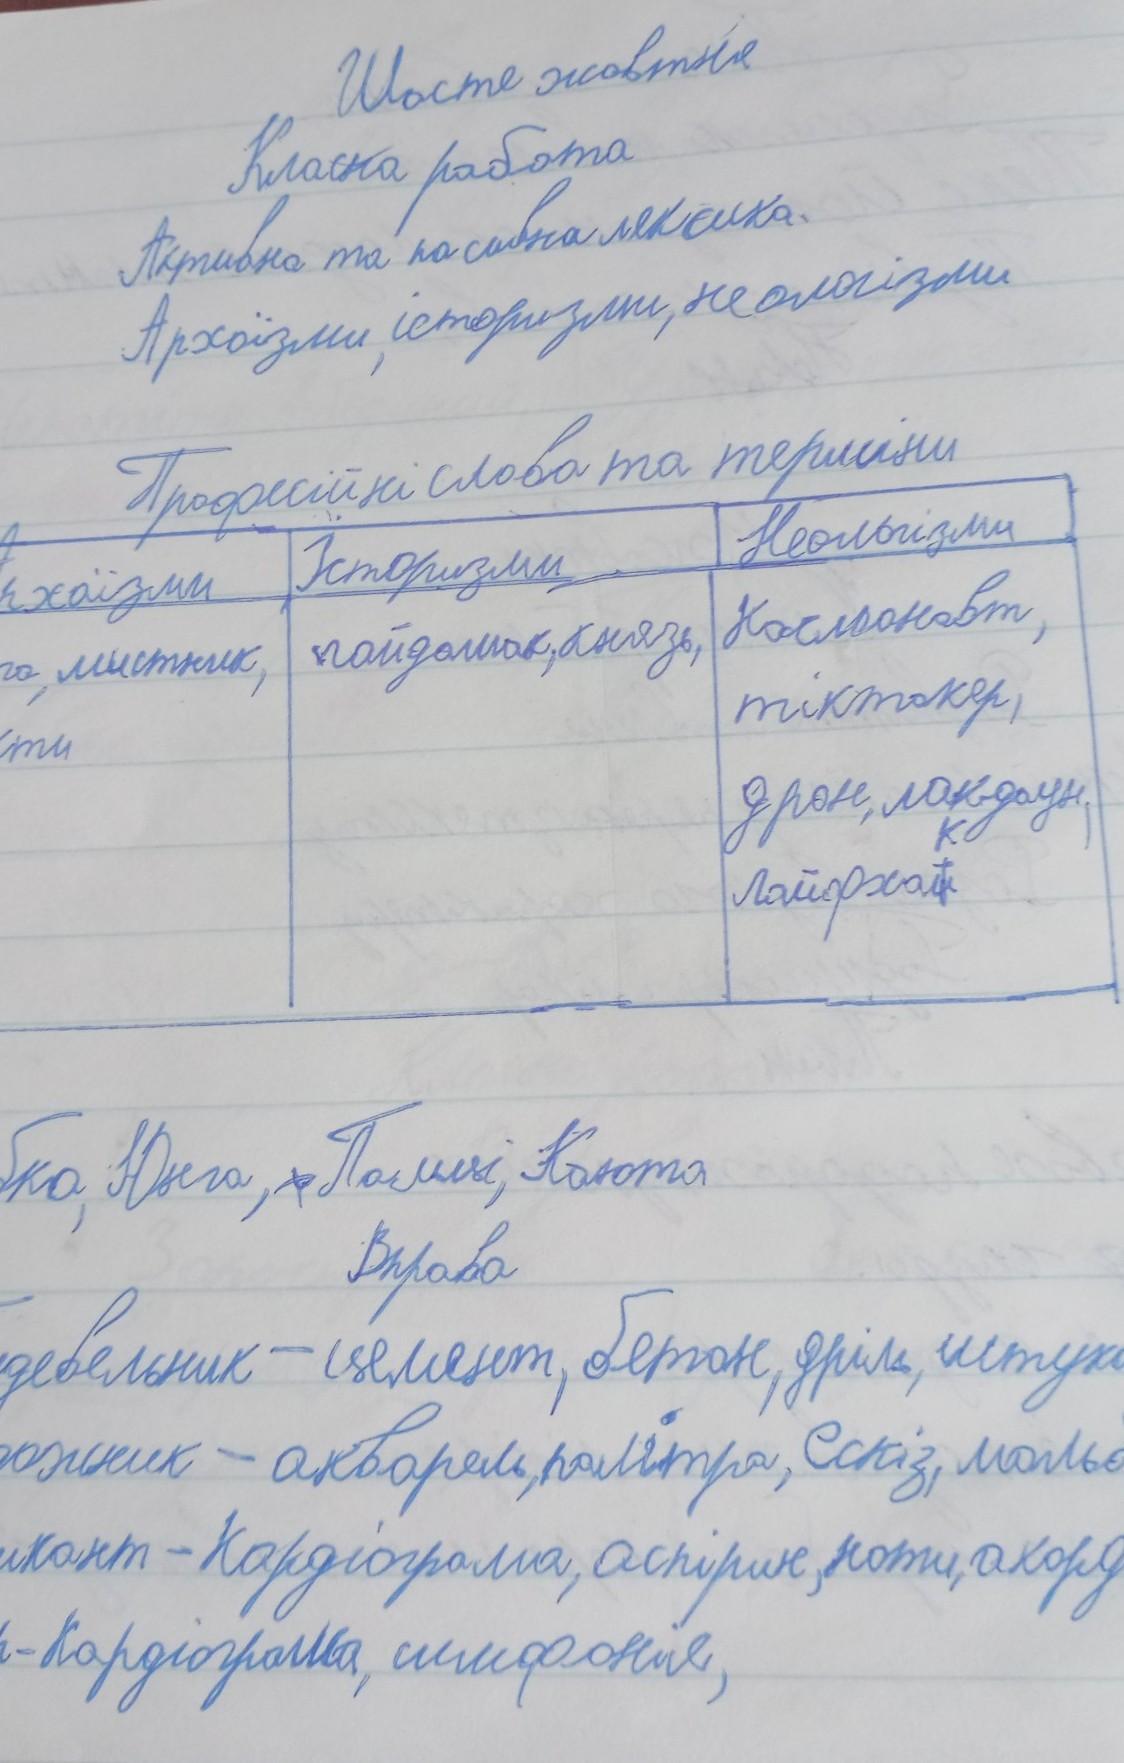 Шосте жовтня
Класна работа
Активна та пасивна лексика.
Архаїзми, історизми, неологізми
Професійні слова та терміни
рхаїзми Історизми Неологізми
га, мистник, гайдамак, князь, Космонавт,
тіктокер,
кти
дрон, локдаун,
к
Лайфхай
бка, Юнга, Палмі, Каюта
Вправа
удевельник – цемент, бетон, дріль, штука
дожник – акварель, палітра, Єскіз, мольб
икант – Кардіограма, аспірин, ноти, акорд
р - Кардіограма, симфонія,